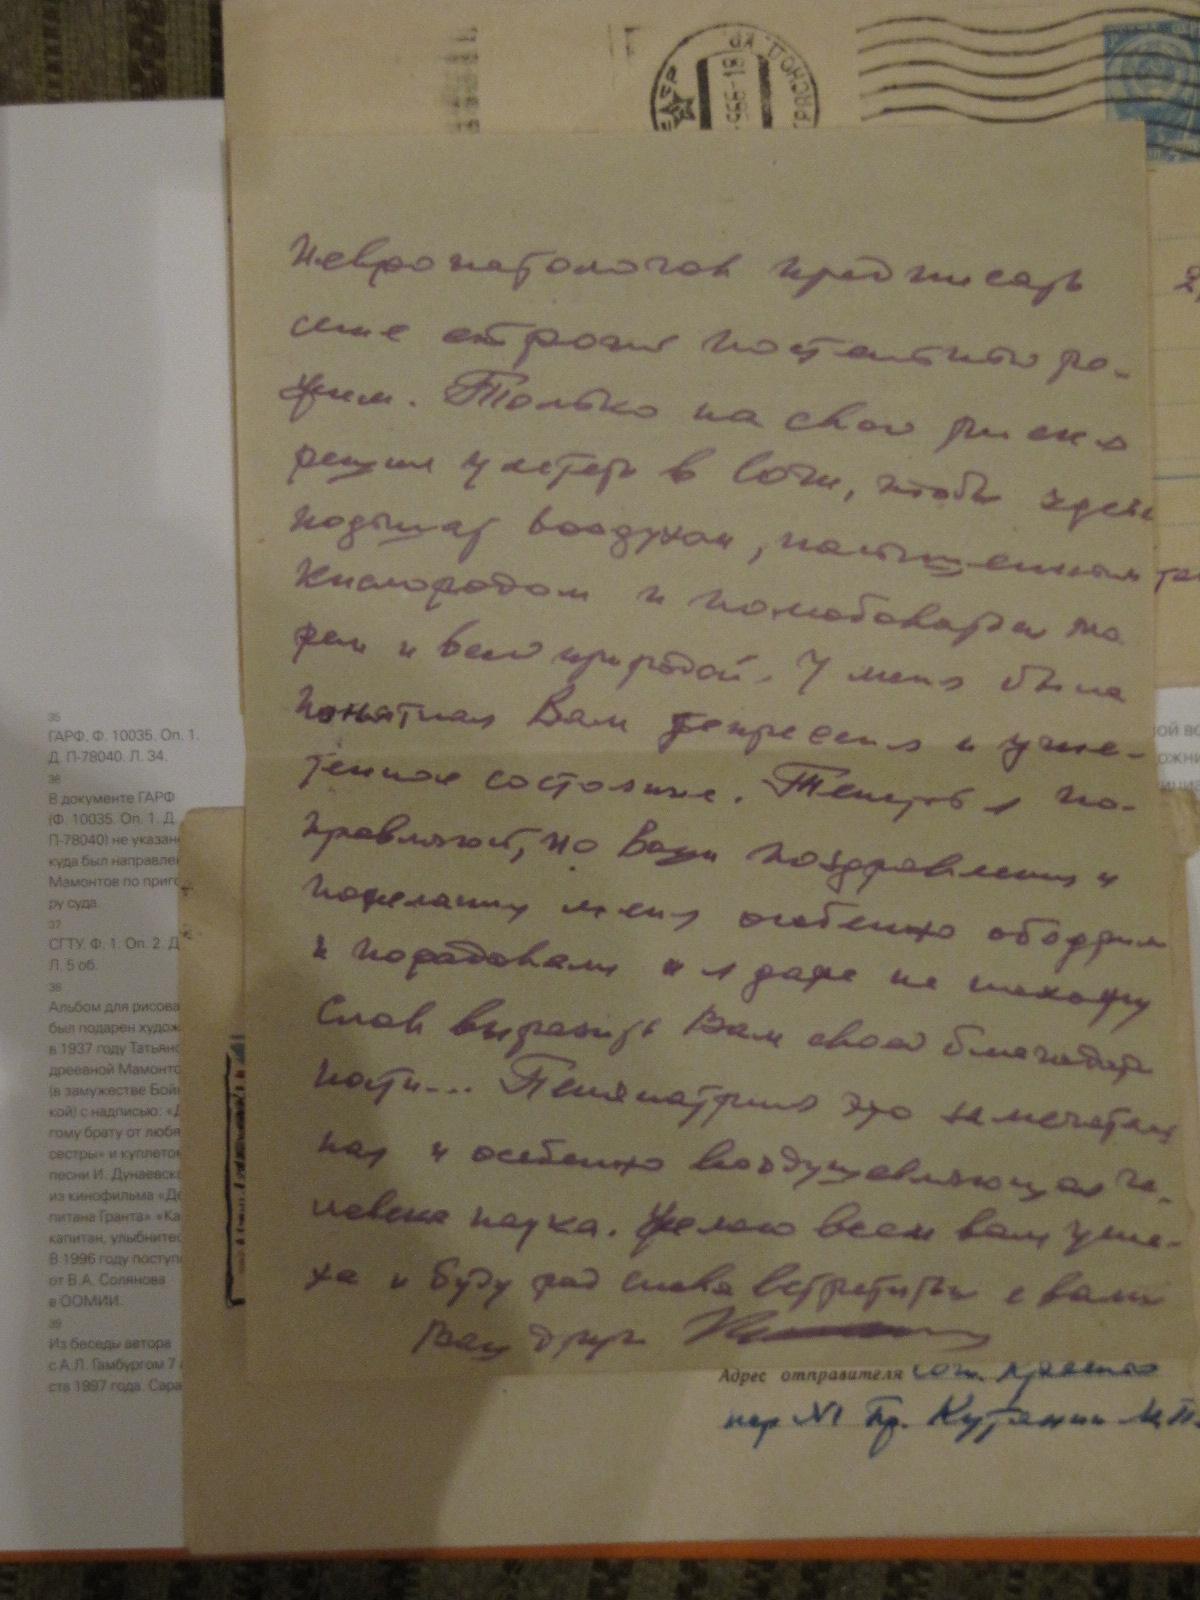 КРСНОД. КР.
ДАР
-966-18
Невропатологов предписать
мне строгий постельный ре-
жим. Только на свой риск я
решил улететь в Сочи, чтобы здесь
подышать воздухом, насыщенным
кислородом и полюбоваться мо
рем и всей природой. У меня была
понятная Вам депрессия и угне-
тенное состояние. Теперь я по-
правляюсь, но Ваши поздравления и
пожелания меня особенно ободрили
и порадовали и я даже не нахожу
слов выразить Вам свою благодар
ность... Психиатрия это замечатель
ная и особенно воодушевляющая че-
ловека наука. Желаю всем вам успе-
ха и буду рад снова встретиться с вами
Ваш друг
Адрес отправителя Сочи.
кор №1 Пр. Кутанин М.П.
35
ГАРФ. Ф. 10035. Оп. 1.
Д. П-78040. Л. 34.
36
В документе ГАРФ
(Ф. 10035. Оп. 1. Д.
П-78040) не указано
куда был направлен
Мамонтов по приго
ру суда.
37
СГТУ. Ф. 1. Оп. 2. Д
Л. 5 об.
38
Альбом для рисова
был подарен худож
в 1937 году Татьяно
древной Мамонто
(в замужестве Бойн
кой) с надписью: «Д
гому брату от любя
сестры» и куплетом
песни И. Дунаевско
из кинофильма «Де
питана Гранта» «Ка
капитан, улыбнитес
В 1996 году поступ
от В.А. Солянова
в ООМИИ.
39
Из беседы автора
с А.Л. Гамбургом 7
ств 1997 года. Сара
ОЙ ВО
ОЖНИ